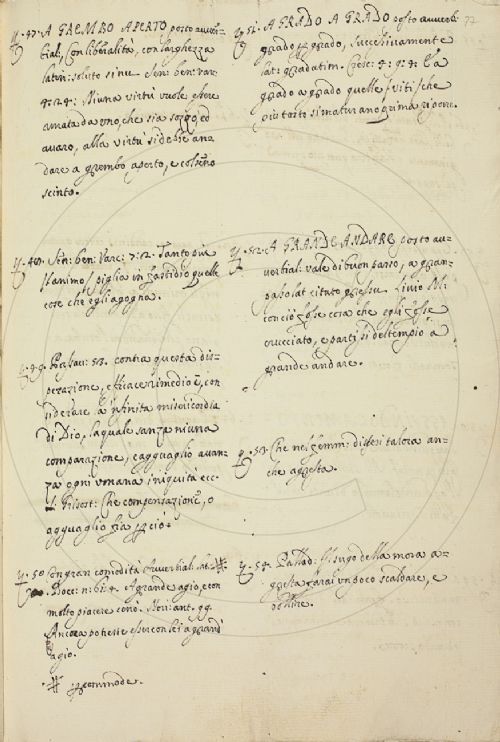 47. A GREMBO APERTO posto avver-
bial, Con liberalità, con larghezza
latin: soluto sinu. Sen: ben: var:
4: 24: Niuna virtù vuole essere
amata da uno, che sia sozzo, ed
avaro, alla virtù si debbe an-
dare a grembo aperto, e col seno
scinto.
48. Sen: ben: Varc: 7: 12. Tanto più
l'animo si piglia in fastidio quelle
cose che egli agogna.
49. Passav: 53. contra questa dis-
perazione, efficace rimedio è, con
siderare la infinita misericordia
di Dio, la quale sanza niuna
comparazione, e agguaglio avan-
za ogni umana iniquità ecc.
S. Grisost: Che compensazione, o
agguaglio fia per ciò.
50. Con gran comodità Avverbial. lat: #
Bocc: n: 61: 4. A grande agio, e con
molto piacere cenò. Nov: ant: 99.
Ancora potreste esser con lei a grand'
agio.
# percommode.
77
51. A GRADO A GRADO posto avverbi:
grado per grado, successivamente
lat: gradatim. Cresc: 4: 9: 4: Ma
grado a grado quelle viti che
più tosto si maturano prima si pone.
52. A GRANDE ANDARE posto av-
verbial: vale di buon passo, a gran-
passo lat: citato gressu. Livio M:
conciò fosse cosa che egli fosse
crucciato, e partissi del tempio a
grande andare.
53. Che nel femm: dissesi talora an-
che agresta.
54. Pallad: Il sugo della mora a-
gresta farai un poco scaldare, e
bollire.